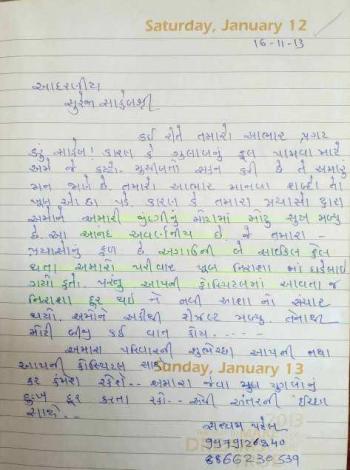 Saturday, January 12
16-11-13
આદરણીય
સુરેશ સાહેબશ્રી
કઈ રીતે તમારો આભાર પ્રગટ
કરું સાહેબ! કારણ કે ગુલાબનું ફૂલ પામવા માટે
અમે જે કષ્ટો. મુસીબતો સહન કરી છે તે અમારું
મન જાણે છે. તમારો આભાર માનવા શબ્દો તો
ખૂબ ઓછા પડે. કારણ કે તમારા પ્રયાસો દ્વારા
અમોને અમારી જીંદગીનું મોટામાં મોટું સુખ મળ્યું
છે. આ આનંદ અવર્ણનીય છે. ને તમારા -
પ્રયાસોનું ફળ છે. અગાઉની બે સાઈકલ ફેલ
થતા અમારો પરિવાર ખૂબ નિરાશા માં
ગયો હતો. પરંતુ આપની હોસ્પિટલમાં આવતા જ
નિરાશા દૂર થઈ ને નવી આશા નો સંચાર
થયો. અમોને અહીંથી રીઝલ્ટ મળ્યુ. તેનાથી
મોટી બીજી કઈ વાત હોય.....
અમારા પરિવારની શુભેચ્છા આપની તથા
આપની હોસ્પિટલ સાથે
Sunday, January 13
કર હંમેશા રહેશે.. અમારા જેવા યુગલોનું
દુઃખ દૂર કરતા રહો.. એવી અંતરની ઈચ્છા
સાથે..
9979126340
8866230539